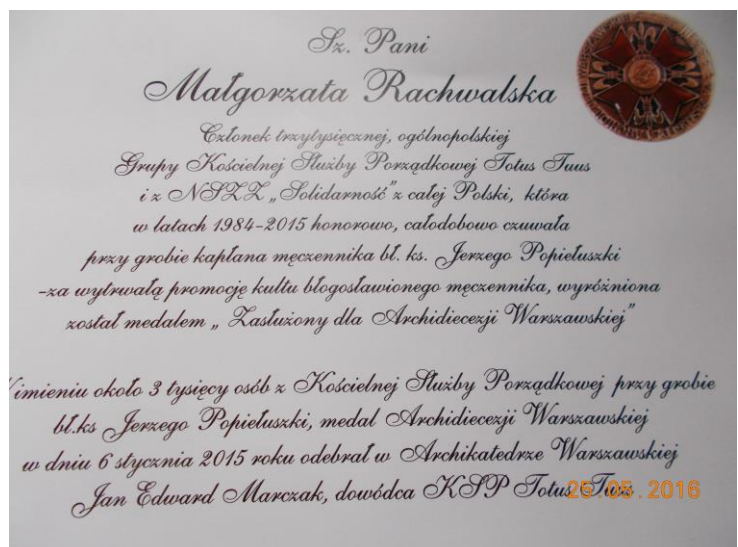 Sz. Pani
Małgorzata Rachwalska
Członek trzytysięcznej, ogólnopolskiej
Grupy Kościelnej Służby Porządkowej Totus Tuus
i z NSZZ „Solidarność” z całej Polski, która
w latach 1984-2015 honorowo, całodobowo czuwała
przy grobie kapłana męczennika bł. ks. Jerzego Popiełuszki
-za wytrwałą promocję kultu błogosławionego męczennika, wyróżniona
został medalem „ Zasłużony dla Archidiecezji Warszawskiej”
imieniu około 3 tysięcy osób z Kościelnej Służby Porządkowej przy grobie
bł.ks Jerzego Popiełuszki, medal Archidiecezji Warszawskiej
w dniu 6 stycznia 2015 roku odebrał w Archikatedrze Warszawskiej
Jan Edward Marczak, dowódca KSP Totus Tuus
25.05.2016